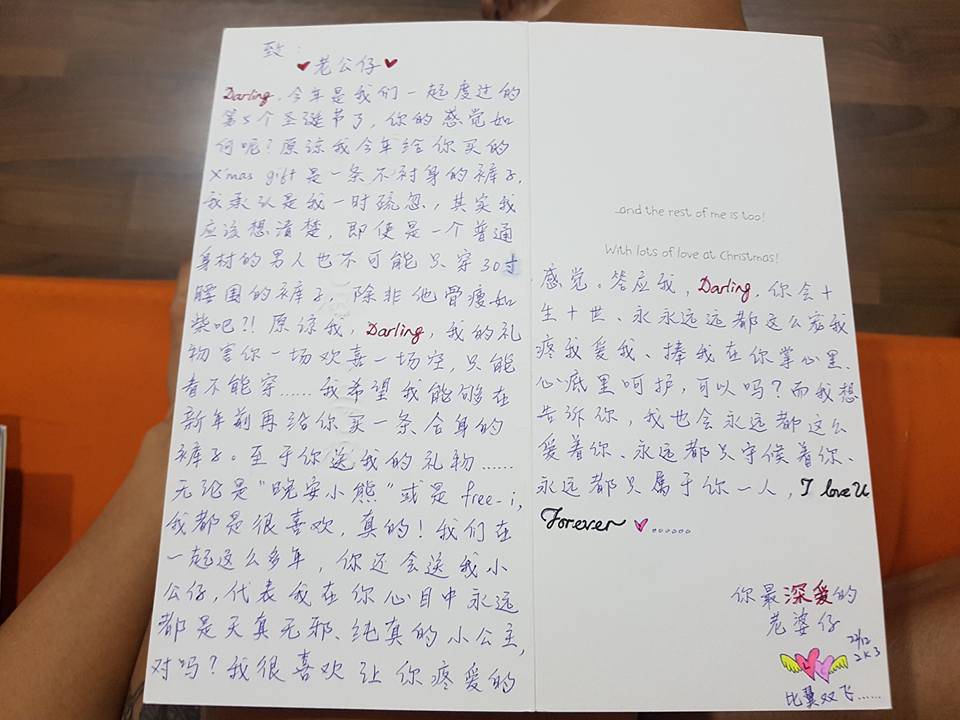 致：
老公仔
Darling, 今年是我们一起度过的
第5个圣诞节了, 你的感觉如
何呢? 原谅我今年给你买的
X'mas gift 是一条不衬身的裤子,
我承认是我一时疏忽, 其实我
应该想清楚, 即使是一个普通
身材的男人也不可能只穿30寸
腰围的裤子, 除非他骨瘦如
柴吧?! 原谅我, Darling, 我的礼
物害你一场欢喜一场空, 只能
看不能穿...... 我希望我能够在
新年前再给你买一条合身的
裤子。至于你送我的礼物......
无论是"晚安小熊"或是 free-i,
我都是很喜欢, 真的! 我们在
一起这么多年, 你还会送我小
公仔, 代表我在你心目中永远
都是天真无邪、纯真的小公主,
对吗? 我很喜欢让你疼爱的
...and the rest of me is too!
With lots of love at Christmas!
感觉。答应我, Darling, 你会十
生十世、永永远远都这么宠我
疼我爱我、捧我在你掌心里、
心底里呵护, 可以吗? 而我想
告诉你, 我也会永远都这么
爱着你、永远都只守候着你、
永远都只属于你一人, I love U
Forever ......
你最深爱的
老婆仔
22/12
2K3
比翼双飞......